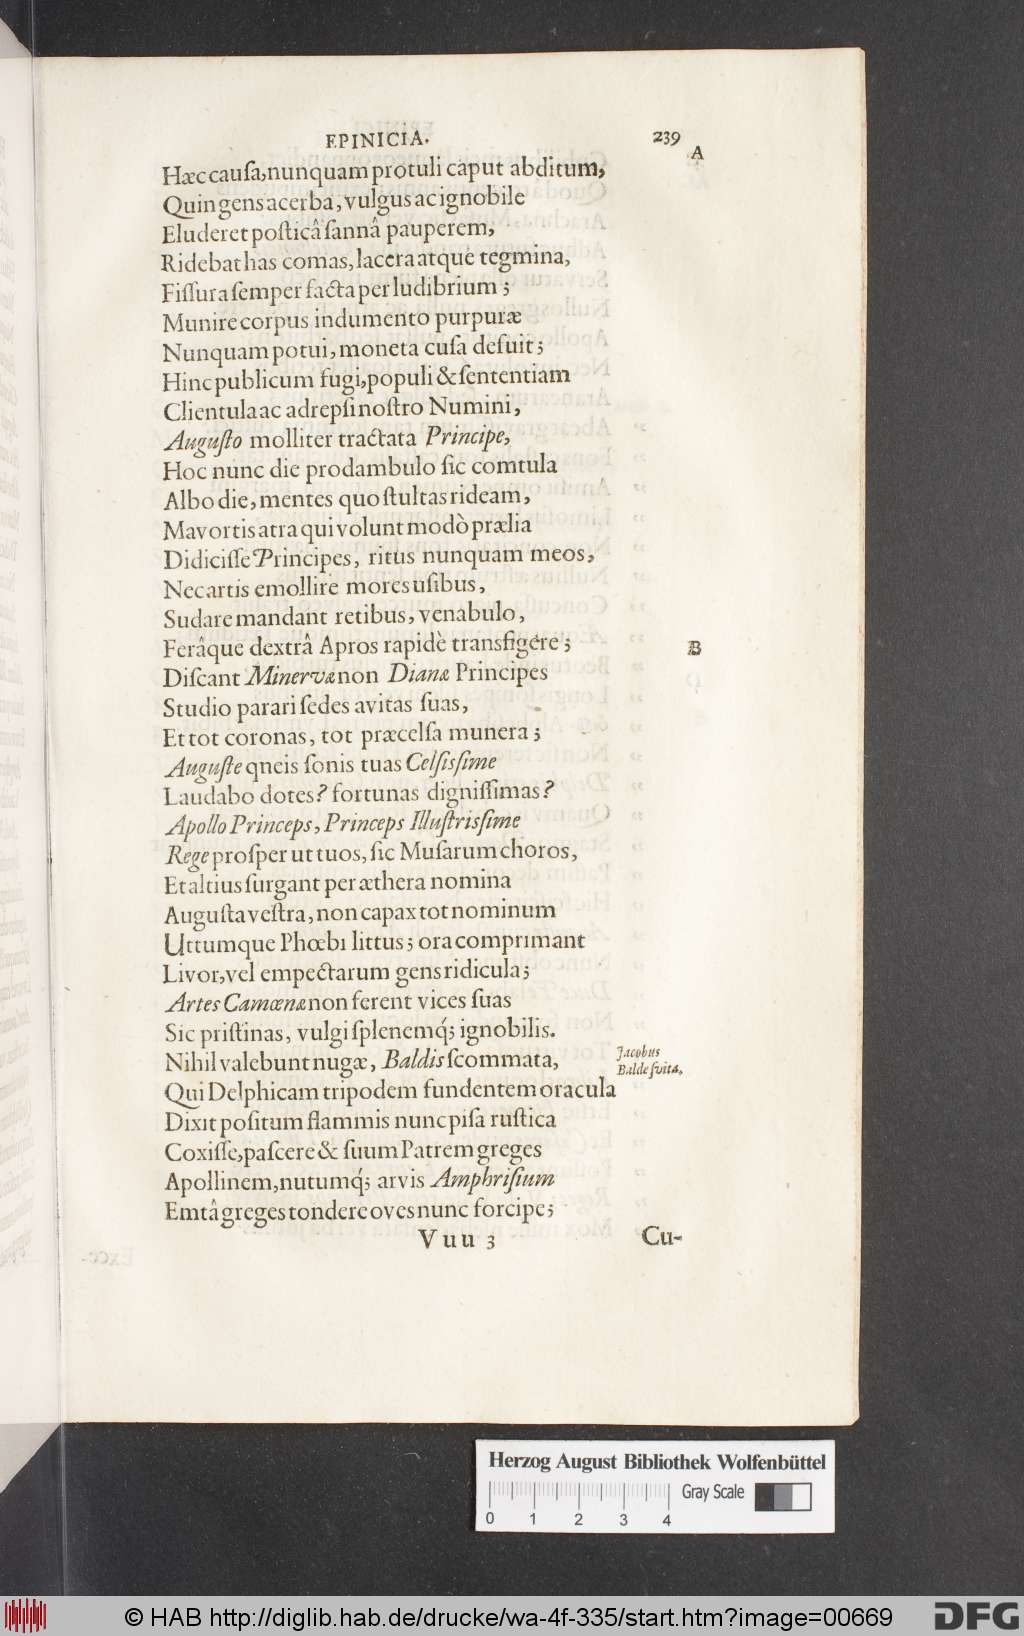 EPINICIA. 239
A
Hæc causa, nunquam protuli caput abditum,
Quin gens acerba, vulgus ac ignobile
Eluderet posticâ sannâ pauperem,
Ridebat has comas, lacera atque tegmina,
Fissura semper facta per ludibrium;
Munire corpus indumento purpuræ
Nunquam potui, moneta cusa defuit;
Hinc publicum fugi, populi & sententiam
Clientula ac adrepsi nostro Numini,
Augusto molliter tractata Principe,
Hoc nunc die prodambulo sic comtula
Albo die, mentes quo stultas rideam,
Mavortis atra qui volunt modò prælia
Didicisse Principes, ritus nunquam meos,
Nec artis emollire mores usibus,
Sudare mandant retibus, venabulo,
Ferâque dextrâ Apros rapidè transfigere;
B
Discant Minervæ non Dianæ Principes
Studio parari sedes avitas suas,
Et tot coronas, tot præcelsa munera;
Auguste qneis sonis tuas Celsissime
Laudabo dotes? fortunas dignissimas?
Apollo Princeps, Princeps Illustrissime
Rege prosper ut tuos, sic Musarum choros,
Et altius surgant per æthera nomina
Augusta vestra, non capax tot nominum
Uttumque Phœbi littus; ora comprimant
Livor, vel empectarum gens ridicula;
Artes Camœnæ non ferent vices suas
Sic pristinas, vulgi splenemq́; ignobilis.
Nihil valebunt nugæ, Baldis scommata,
Jacobus
Balde svita,
Qui Delphicam tripodem fundentem oracula
Dixit positum flammis nunc pisa rustica
Coxisse, pascere & suum Patrem greges
Apollinem, nutumq́; arvis Amphrisium
Emtâ greges tondere oves nunc forcipe;
Vuu 3 Cu-
Herzog August Bibliothek Wolfenbüttel
Gray Scale
0 1 2 3 4
© HAB http://diglib.hab.de/drucke/wa-4f-335/start.htm?image=00669
DFG